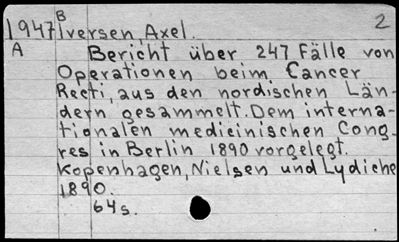 B 2
1947 Iversen, Axel.
A Bericht über 247 Fälle von
Operationen beim Cancer
Recti, aus den nordischen Län-
dern gesammelt. Dem interna-
tionalen medicinischen Cong-
res in Berlin 1890 vorgelegt.
Kopenhagen, Nielsen und Lydiche
1890.
64s.